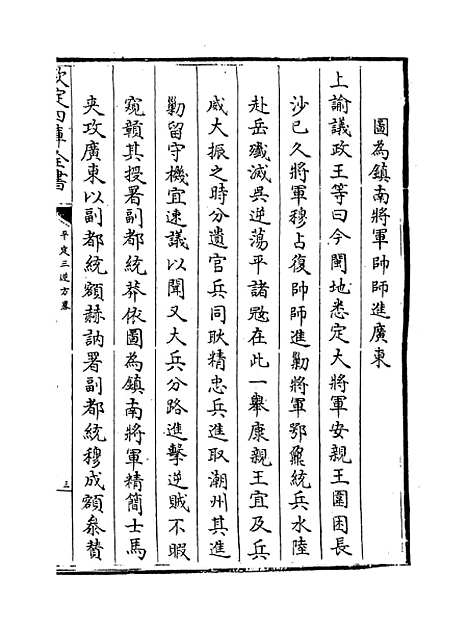 圖為鎮南將軍帥師進廣東
上諭議政王等曰今閩地悉定大將軍安親王圍困長
沙已久將軍穆占復帥師進勦將軍鄂鼐統兵水陸
赴岳殲滅吳逆蕩平諸寇在此一舉康親王宜及兵
威大振之時分遣官兵同耿精忠兵進取潮州其進
勦留守機宜速議以聞又大兵分路進擊逆賊不暇
窺贛其授署副都統莽依圖為鎮南將軍精簡士馬
夾攻廣東以副都統額赫訥署副都統穆成額叅贊
欽定四庫全書
平定三逆方畧
三